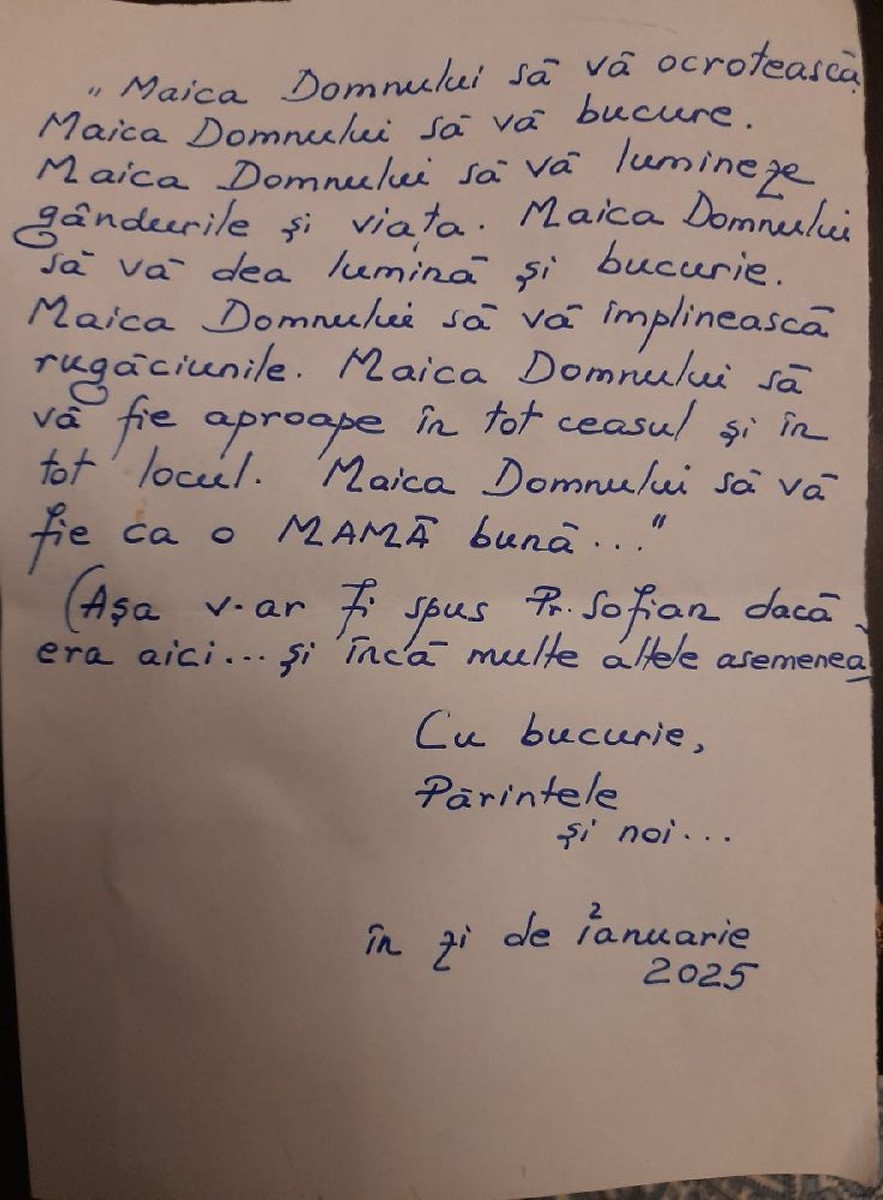 „Maica Domnului să vă ocrotească,
Maica Domnului să vă bucure.
Maica Domnului să vă lumineze
gândurile și viața. Maica Domnului
să vă dea lumină și bucurie.
Maica Domnului să vă împlinească
rugăciunile. Maica Domnului să
vă fie aproape în tot ceasul și în
tot locul. Maica Domnului să vă
fie ca o MAMĂ bună..."
(Așa v-ar fi spus Pr. Sofian dacă
era aici... și încă multe altele asemenea)
Cu bucurie,
Părintele
și noi...
în zi de 2 ianuarie
2025